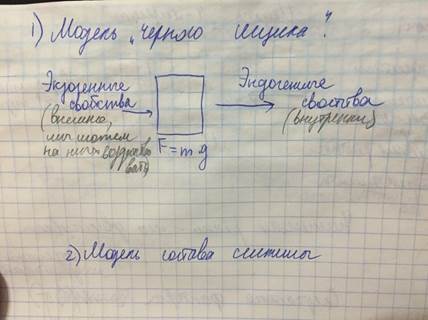 1) Модель "черного ящика".
Экзогенные
свойства
(внешние,
мы можем
на них воздейство
вать)
F = m g
Эндогенные
свойства
(внутренние)
2) Модель состава системы